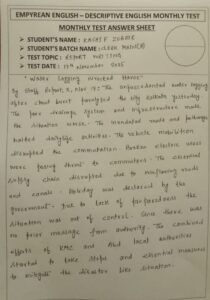 EMPYREAN ENGLISH – DESCRIPTIVE ENGLISH MONTHLY TEST
MONTHLY TEST ANSWER SHEET
➤ STUDENT'S NAME :
➤ STUDENT'S BATCH NAME :
➤ TEST TOPIC : REPORT WRITING
➤ TEST DATE : 17th November 2025
'Water Logging Wrecked Havoc'
By Staff Reporter, Nov 17: The unprecedented water logging
after cloud burst paralyzed the city Kolkata yesterday.
The poor drainage system and infrastructure made
the situation worse. The inundated roads and pathways
halted daily life activities. The vehicle mobilities
disrupted the commutation. Broken electric wires
were posing threat to commuters. The essential
supply chain disrupted due to nonfunctioning roads
and canals. Holiday was declared by the
government but to lack of far preparedness the
situations was out of control. Since there was
no prior message from authority. The combined
efforts of KMC and local authorities
started to take steps and essential measures
to mitigate the disaster like situation.